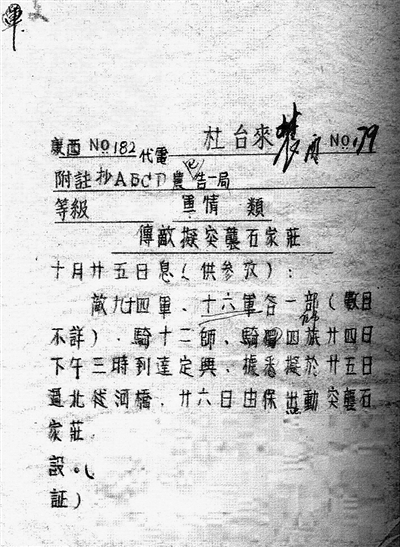 康西 NO 182 代電 杜台來 NO 179
附註抄ABCD農告一局
等級 軍情 類
傳敵擬突襲石家莊
十月廿五日息(供參攷):
敵九十四軍、十六軍各一部(數目
不詳)、騎十二師、騎四旅廿四日
下午三時到達定興、據悉擬於廿五日
逼北徐河橋、廿六日由保出動突襲石
家莊.
設
証)